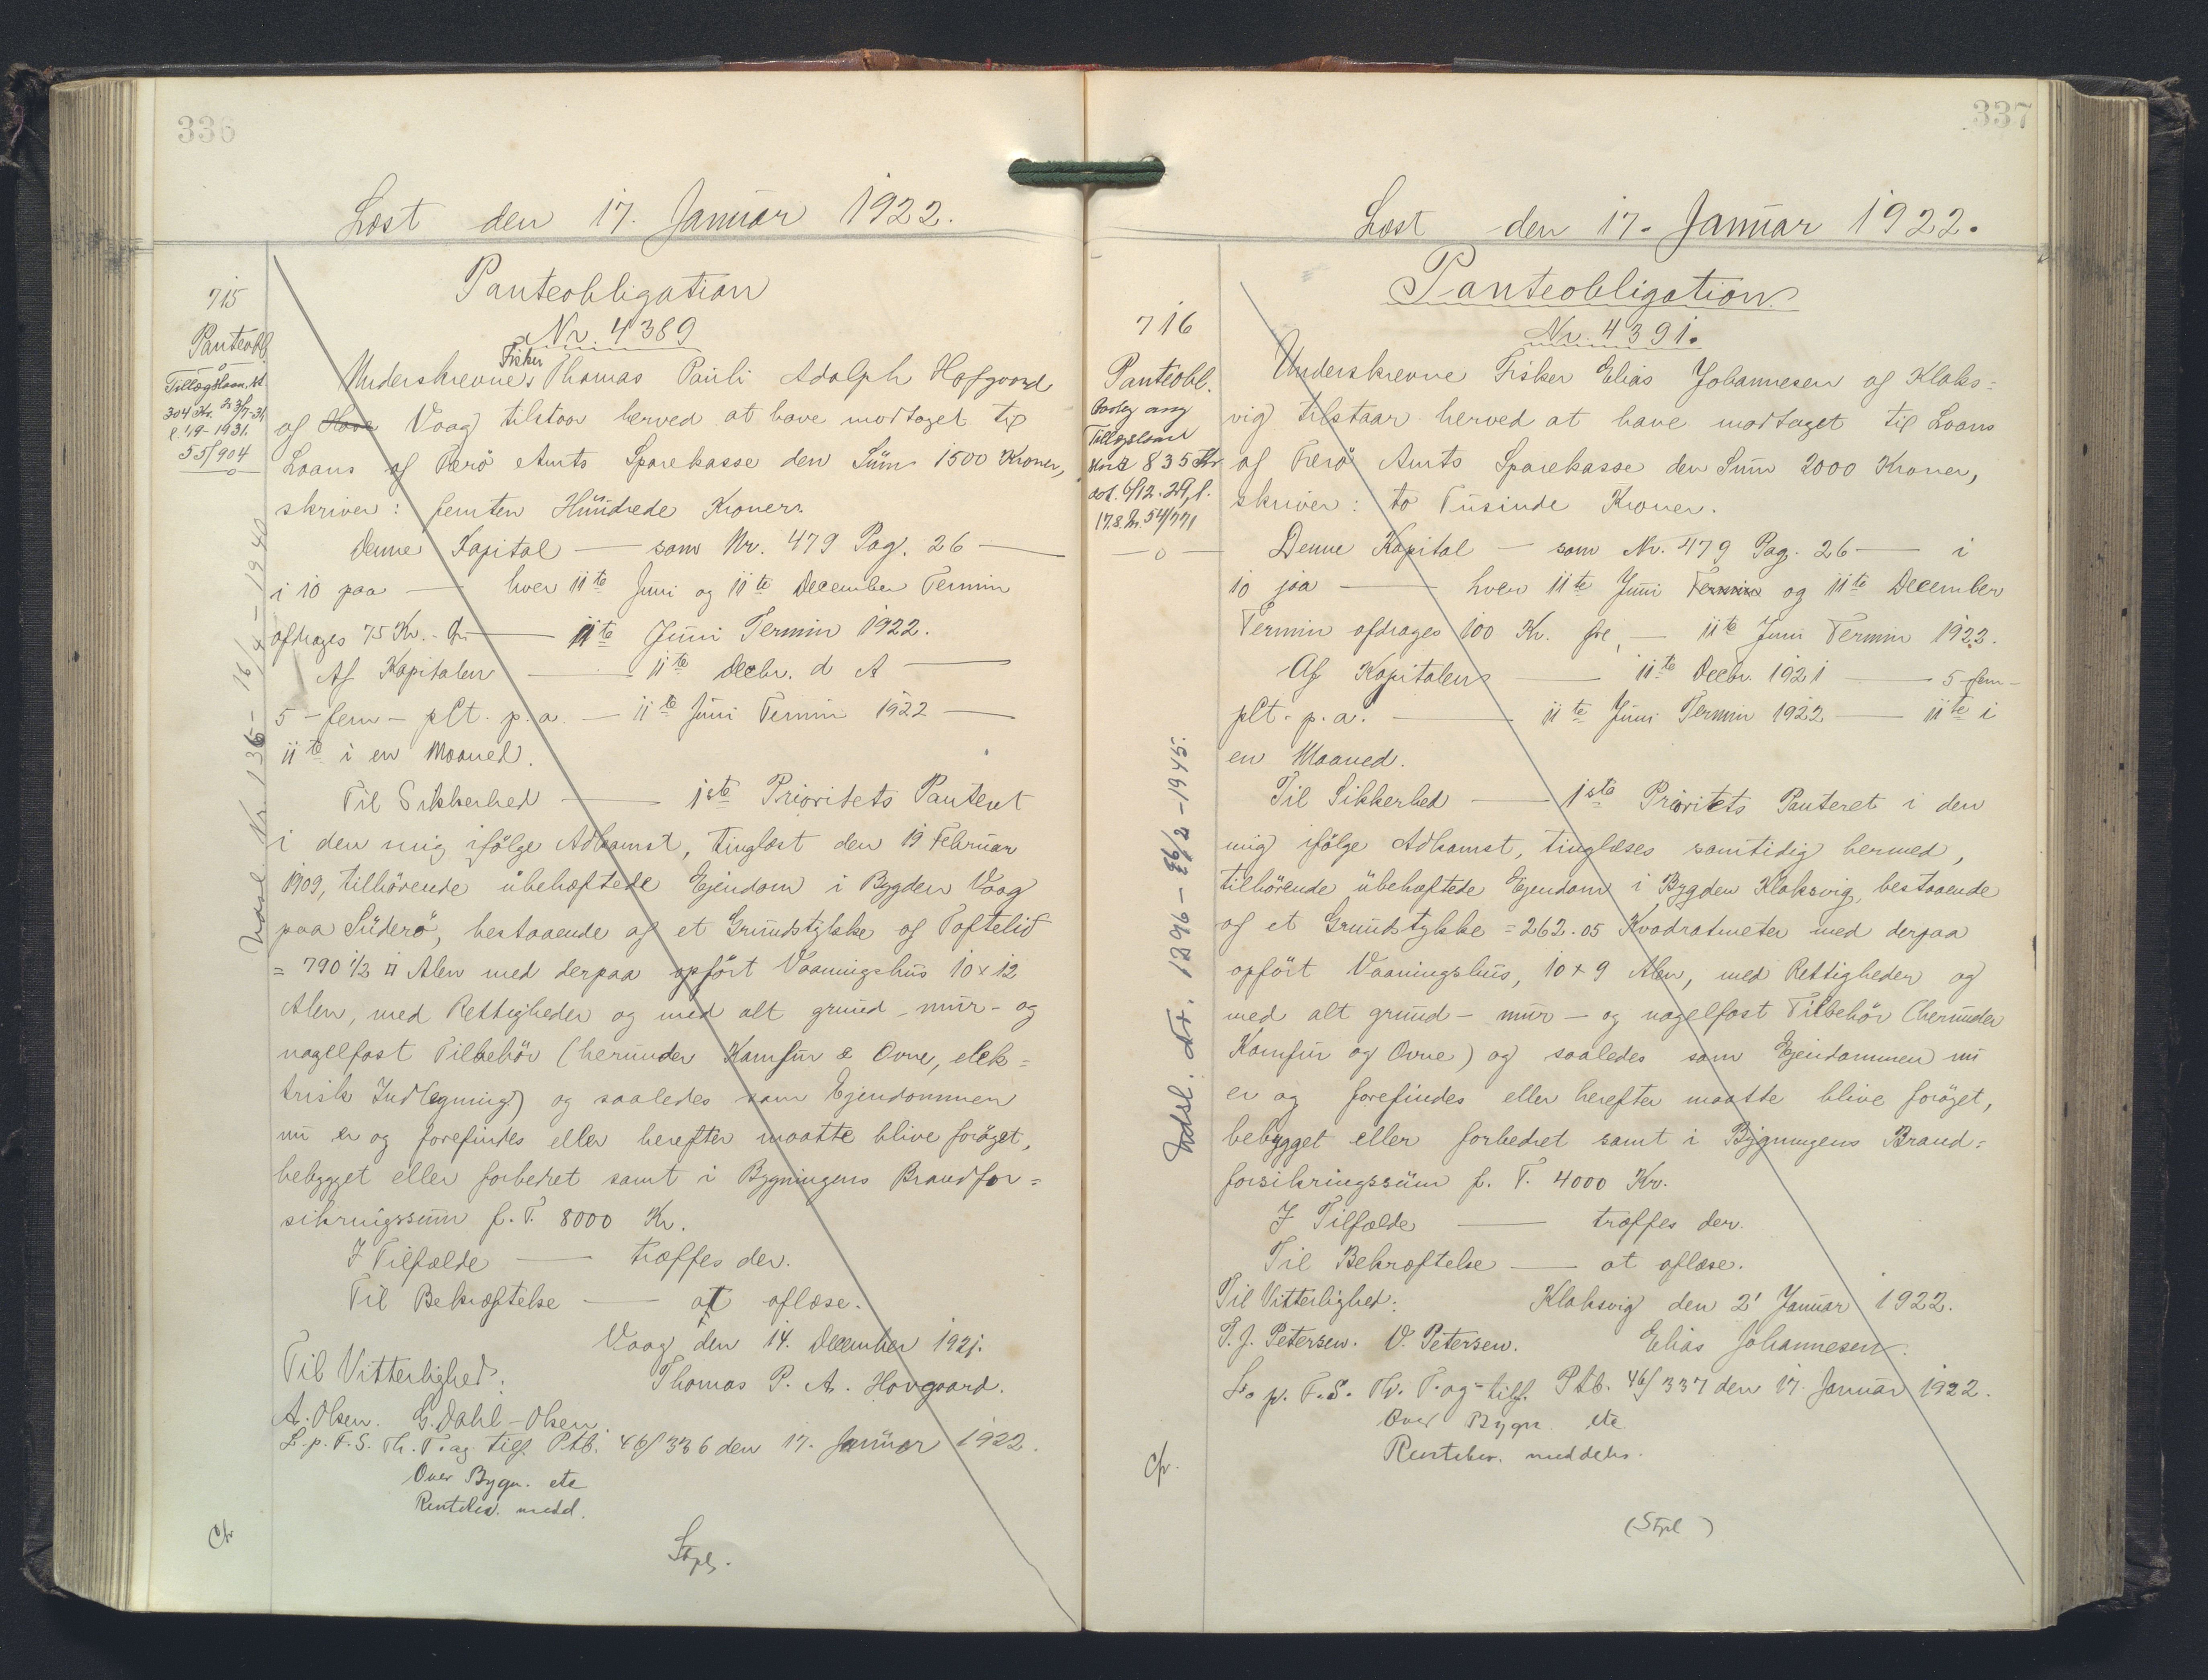 336
Læst den 17. Januar 1922.
715
Panteobl.
Tillægslaan st.
304 Kr.
l. 1/9-1931.
55/904
Panteobligation
Nr. 4389
Underskrevne Fisker Thomas Pauli Adolph Hofgaard
af Hove Vaag tilstaar herved at have modtaget til
Laans af Færö Amts Sparekasse den Sum 1500 Kroner,
skriver: femten Hundrede Kroner.
Denne Kapital — som Nr. 479 Pag. 26 —
i 10 paa — hver 11te Juni og 11te December Termin
afdrages 75 Kr. — 11te Juni Termin 1922.
Af Kapitalen — 11te Decbr. d A —
5 - fem - pCt. p. a. — 11te Juni Termin 1922 —
11te i en Maaned.
Til Sikkerhed — 1ste Prioritets Panteret
i den mig ifölge Adkomst, tinglæst den 19 Februar
1909, tilhörende ubehæftede Ejendom i Bygden Vaag
paa Suderö, bestaaende af et Grundstykke af Toftelid
= 790 1/2 □ Alen med derpaa opfört Vaaningshus 10 x 12
Alen, med Rettigheder og med alt grund - mur - og
nagelfast Tilbehör (herunder Komfur & Ovne, elek=
trisk Indlægning) og saaledes som Ejendommen
nu er og forefindes eller herefter maatte blive foröget,
bebygget eller forbedret samt i Bygningens Brandfor=
sikringssum f. T. 8000 Kr.
I Tilfælde — træffes der.
Til Bekræftelse — at aflæse.
Vaag den 14. December 1921.
Til Vitterlighed: Thomas P. A. Hovgaard.
A. Olsen. G. Dahl-Olsen.
L. p. F. S. Th. T. og tilf. Ptb. 46/336 den 17. Januar 1922.
Over Bygn. etc
Rentebev. medd.
Cfr.
Stpl.
Udsl. Nr. 136 - 16/4 - 1940
337
Læst den 17. Januar 1922.
716
Panteobl.
Paateg ang
Tillægslaan
stort 835 Kr
dat. 6/12. 29, l.
17.8. 54/771
Panteobligation
Nr. 4391.
Underskrevne Fisker Elias Johannesen af Klaks=
vig tilstaar herved at have modtaget til Laans
af Færö Amts Sparekasse den Sum 2000 Kroner,
skriver: to Tusinde Kroner.
Denne Kapital — som Nr. 479 Pag. 26 — i
10 paa — hver 11te Juni Termin og 11te December
Termin afdrages 100 Kr. — 11te Juni Termin 1922.
Af Kapitalen — 11te Decbr. 1921 — 5 - fem -
pCt. p. a. — 11te Juni Termin 1922 — 11te i
en Maaned.
Til Sikkerhed — 1ste Prioritets Panteret i den
mig ifölge Adkomst, tinglæses samtidig hermed,
tilhörende ubehæftede Ejendom i Bygden Klaksvig, bestaaende
af et Grundstykke = 262.05 Kvadratmeter med derpaa
opfört Vaaningshus, 10 x 9 Alen, med Rettigheder og
med alt grund - mur - og nagelfast Tilbehör (herunder
Komfur og Ovne) og saaledes som Ejendommen nu
er og forefindes eller herefter maatte blive foröget,
bebygget eller forbedret samt i Bygningens Brand=
forsikringssum f. T. 4000 Kr.
I Tilfælde — træffes der.
Til Bekræftelse — at aflæse.
Til Vitterlighed: Klaksvig den 2' Januar 1922.
P. J. Petersen. V. Petersen. Elias Johannesen.
L. p. F. S. Th. T. og tilf. Ptb. 46/337 den 17. Januar 1922.
Over Bygn. etc
Rentebev. meddeles.
Cfr.
(Stpl)
Udsl. Nr. 1296 - 26/2 - 1945.